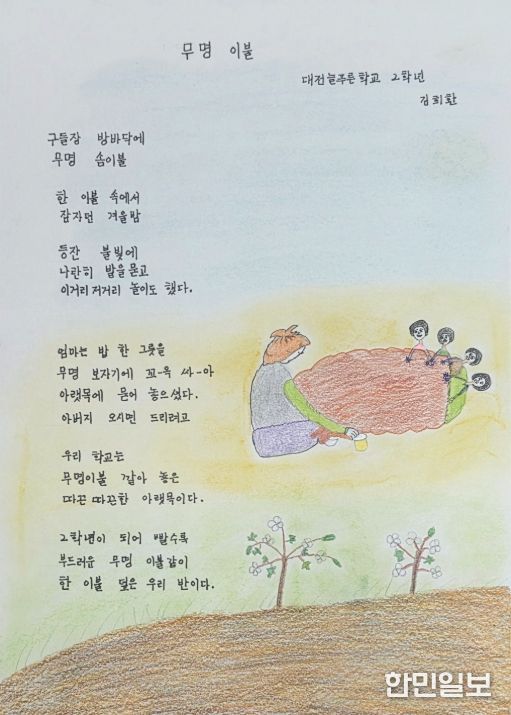 무명 이불
대전늘푸른학교 2학년
김희환
구들장 방바닥에
무명 솜이불
한 이불 속에서
잠자던 겨울밤
등잔 불빛에
나란히 발을 묻고
이거리저거리 놀이도 했다.
엄마는 밥 한 그릇을
무명 보자기에 꼬-옥 싸-아
아랫목에 묻어 놓으셨다.
아버지 오시면 드리려고
우리 학교는
무명이불 깔아 놓은
따끈따끈한 아랫목이다.
2학년이 되어 빨수록
부드러운 무명 이불같이
한 이불 덮은 우리 반이다.
한민일보